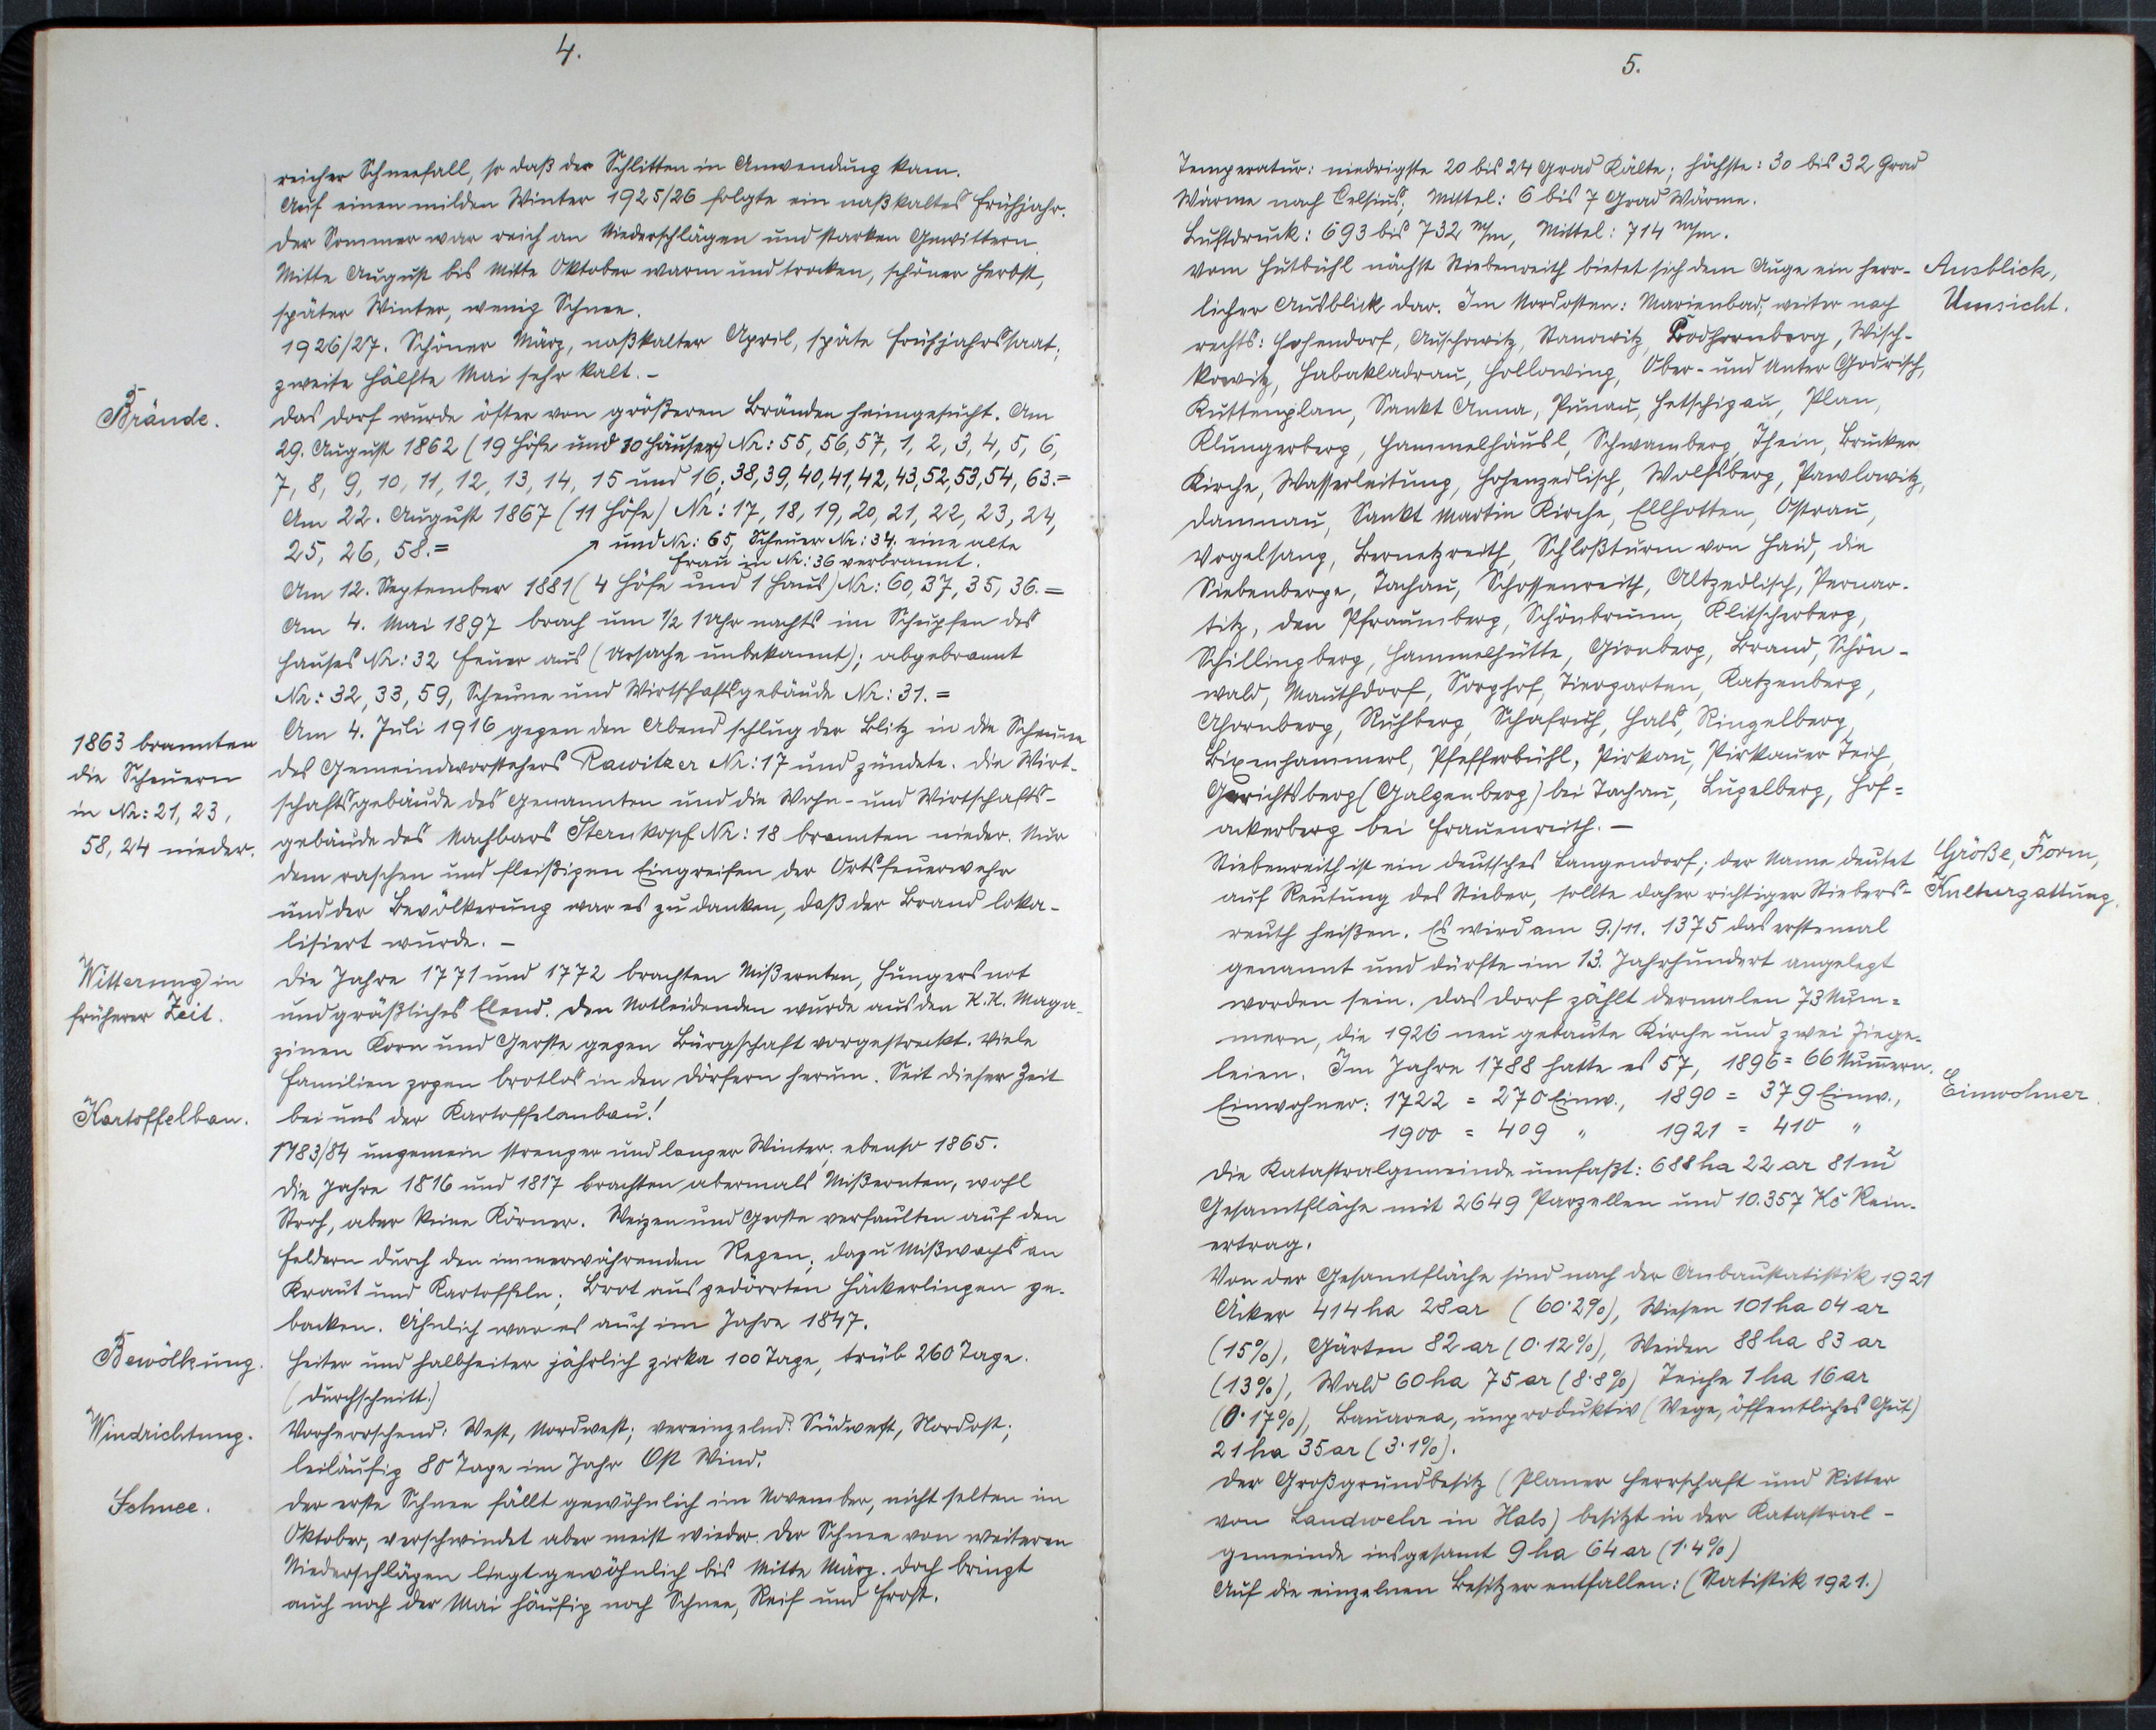 4.
reicher Schneefall, so daß der Schlitten in Anwendung kam.
Auf einen milden Winter 1925/26 folgte ein naßkaltes Frühjahr.
Der Sommer war reich an Niederschlägen und starken Gewittern.
Mitte August bis Mitte Oktober warm und trocken, schöner Herbst,
später Winter, wenig Schnee.
1926/27. Schöner März, naßkalter April, späte Frühjahrssaat;
zweite Hälfte Mai sehr kalt. -
Brände.
Das Dorf wurde öfter von größeren Bränden heimgesucht. Am
29. August 1862 (19 Höfe und 10 Häuser) Nr: 55, 56, 57, 1, 2, 3, 4, 5, 6,
7, 8, 9, 10, 11, 12, 13, 14, 15 und 16; 38, 39, 40, 41, 42, 43, 52, 53, 54, 63.=
Am 22. August 1867 (11 Höfe) Nr: 17, 18, 19, 20, 21, 22, 23, 24,
25, 26, 58.=
und Nr: 65, Scheuer Nr: 34; eine alte
Frau in Nr: 36 verbrannt.
Am 12. September 1881 (4 Höfe und 1 Haus) Nr: 60, 37, 35, 36. =
Am 4. Mai 1897 brach um 1/2 1 Uhr nachts im Schupfen des
Hauses Nr: 32 Feuer aus (Ursache unbekannt); abgebrannt
Nr: 32, 33, 59, Scheune und Wirtschaftsgebäude Nr: 31. =
1863 brannten
die Scheuern
in Nr: 21, 23,
58, 24 nieder.
Am 4. Juli 1916 gegen den Abend schlug der Blitz in die Scheune
des Gemeindevorstehers Rawitzer Nr: 17 und zündete. Die Wirt-
schaftsgebäude des Genannten und die Wohn- und Wirtschafts-
gebäude des Nachbars Sternkopf Nr: 18 brannten nieder. Nur
dem raschen und fleißigen Eingreifen der Ortsfeuerwehr
und der Bevölkerung war es zu danken, daß der Brand loka-
lisiert wurde. -
Witterung in
früherer Zeit.
Die Jahre 1771 und 1772 brachten Mißernten, Hungersnot
und gräßliches Elend. Den Notleidenden wurde aus den K.K. Maga-
zinen Korn und Gerste gegen Bürgschaft vorgestreckt. Viele
Familien zogen brotlos in den Dörfern herum. Seit dieser Zeit
Kartoffelbau.
bei uns der Kartoffelanbau!
1783/84 ungemein strenger und langer Winter; ebenso 1865.
Die Jahre 1816 und 1817 brachten abermals Mißernten, wohl
Stroh, aber keine Körner. Weizen und Gerste verfaulten auf den
Feldern durch den immerwährenden Regen; dazu Mißwachs an
Kraut und Kartoffeln; Brot aus gedörrten Häckerlingen ge-
backen. Ähnlich war es auch im Jahre 1847.
Bewölkung.
Heiter und halbheiter jährlich zirka 100 Tage, trüb 260 Tage.
(Durchschnitt.)
Windrichtung.
Vorherrschend: West, Nordwest; vereinzelnd: Südwest, Nordost;
beiläufig 80 Tage im Jahr Ost Wind.
Schnee.
Der erste Schnee fällt gewöhnlich im November, nicht selten im
Oktober, verschwindet aber meist wieder. Der Schnee von weiteren
Niederschlägen liegt gewöhnlich bis Mitte März. Doch bringt
auch noch der Mai häufig noch Schnee, Reif und Frost.
5.
Temperatur: niedrigste 20 bis 24 Grad Kälte; höchste: 30 bis 32 Grad
Wärme nach Celsius; Mittel: 6 bis 7 Grad Wärme.
Luftdruck: 693 bis 732 m/m, Mittel: 714 m/m.
Ausblick,
Umsicht.
Vom Hutbühl nächst Stiebenreith bietet sich dem Auge ein herr-
licher Ausblick dar. Im Nordosten: Marienbad; weiter nach
rechts: Hohendorf, Auschowitz, Stanowitz, Podhornberg, Wisch-
kowitz, Habakladrau, Hollowing, Ober- und Unter Godrisch,
Kuttenplan, Sankt Anna, Punau, Hetschigau, Plan,
Klungerberg, Hammelhäusl, Schwamberg, Thein, Brucker
Kirche, Wasserleitung, Hohenzedlisch, Wolfsberg, Pawlowitz,
Damnau, Sankt Martin Kirche, Ellhotten, Ostrau,
Vogelsang, Bernetzreith, Schloßturm von Haid, die
Siebenberge, Tachau, Schossenreith, Altzedlisch, Pernar-
titz, den Pfraumberg, Schönbrunn, Klitscherberg,
Schillingberg, Hammelhütte, Girnberg, Brand, Schön-
wald, Mauthdorf, Sorghof, Tiergarten, Katzenberg,
Ahornberg, Ruhberg, Schafruh, Hals, Ringelberg,
Bixenhammerl, Pfefferbühl, Pirkau, Pirkauer Teich,
Gerichtsberg (Galgenberg) bei Tachau, Lugelberg, Hof=
ackerberg bei Frauenreith. -
Größe, Form,
Kulturgattung.
Stiebenreith ist ein deutsches Langendorf; der Name deutet
auf Reutung des Stieber, sollte daher richtiger Stiebers-
reuth heißen. Es wird am 9./11. 1375 das erstemal
genannt und dürfte im 13. Jahrhundert angelegt
worden sein. Das Dorf zählt dermalen 73 Num=
mern, die 1926 neu gebaute Kirche und zwei Ziege-
leien. Im Jahre 1788 hatte es 57, 1896 = 66 Nummern.
Einwohner.
Einwohner: 1722 = 270 Einw., 1890 = 379 Einw.,
1900 = 409 " 1921 = 410 "
Die Katastralgemeinde umfaßt: 688 ha 22 ar 81 m²
Gesamtfläche mit 2649 Parzellen und 10.357 Kč Rein-
ertrag.
Von der Gesamtfläche sind nach der Anbaustatistik 1921
Äcker 414 ha 28 ar (60·2%), Wiesen 101 ha 04 ar
(15%), Gärten 82 ar (0·12%), Weiden 88 ha 83 ar
(13%), Wald 60 ha 75 ar (8·8%) Teiche 1 ha 16 ar
(0·17%), Bauarea, unproduktiv (Wege, öffentliches Gut)
21 ha 35 ar (3·1%).
Der Großgrundbesitz (Planer Herrschaft und Ritter
von Landwehr in Hals) besitzt in der Katastral-
gemeinde insgesamt 9 ha 64 ar (1·4%)
Auf die einzelnen Besitzer entfallen: (Statistik 1921.)